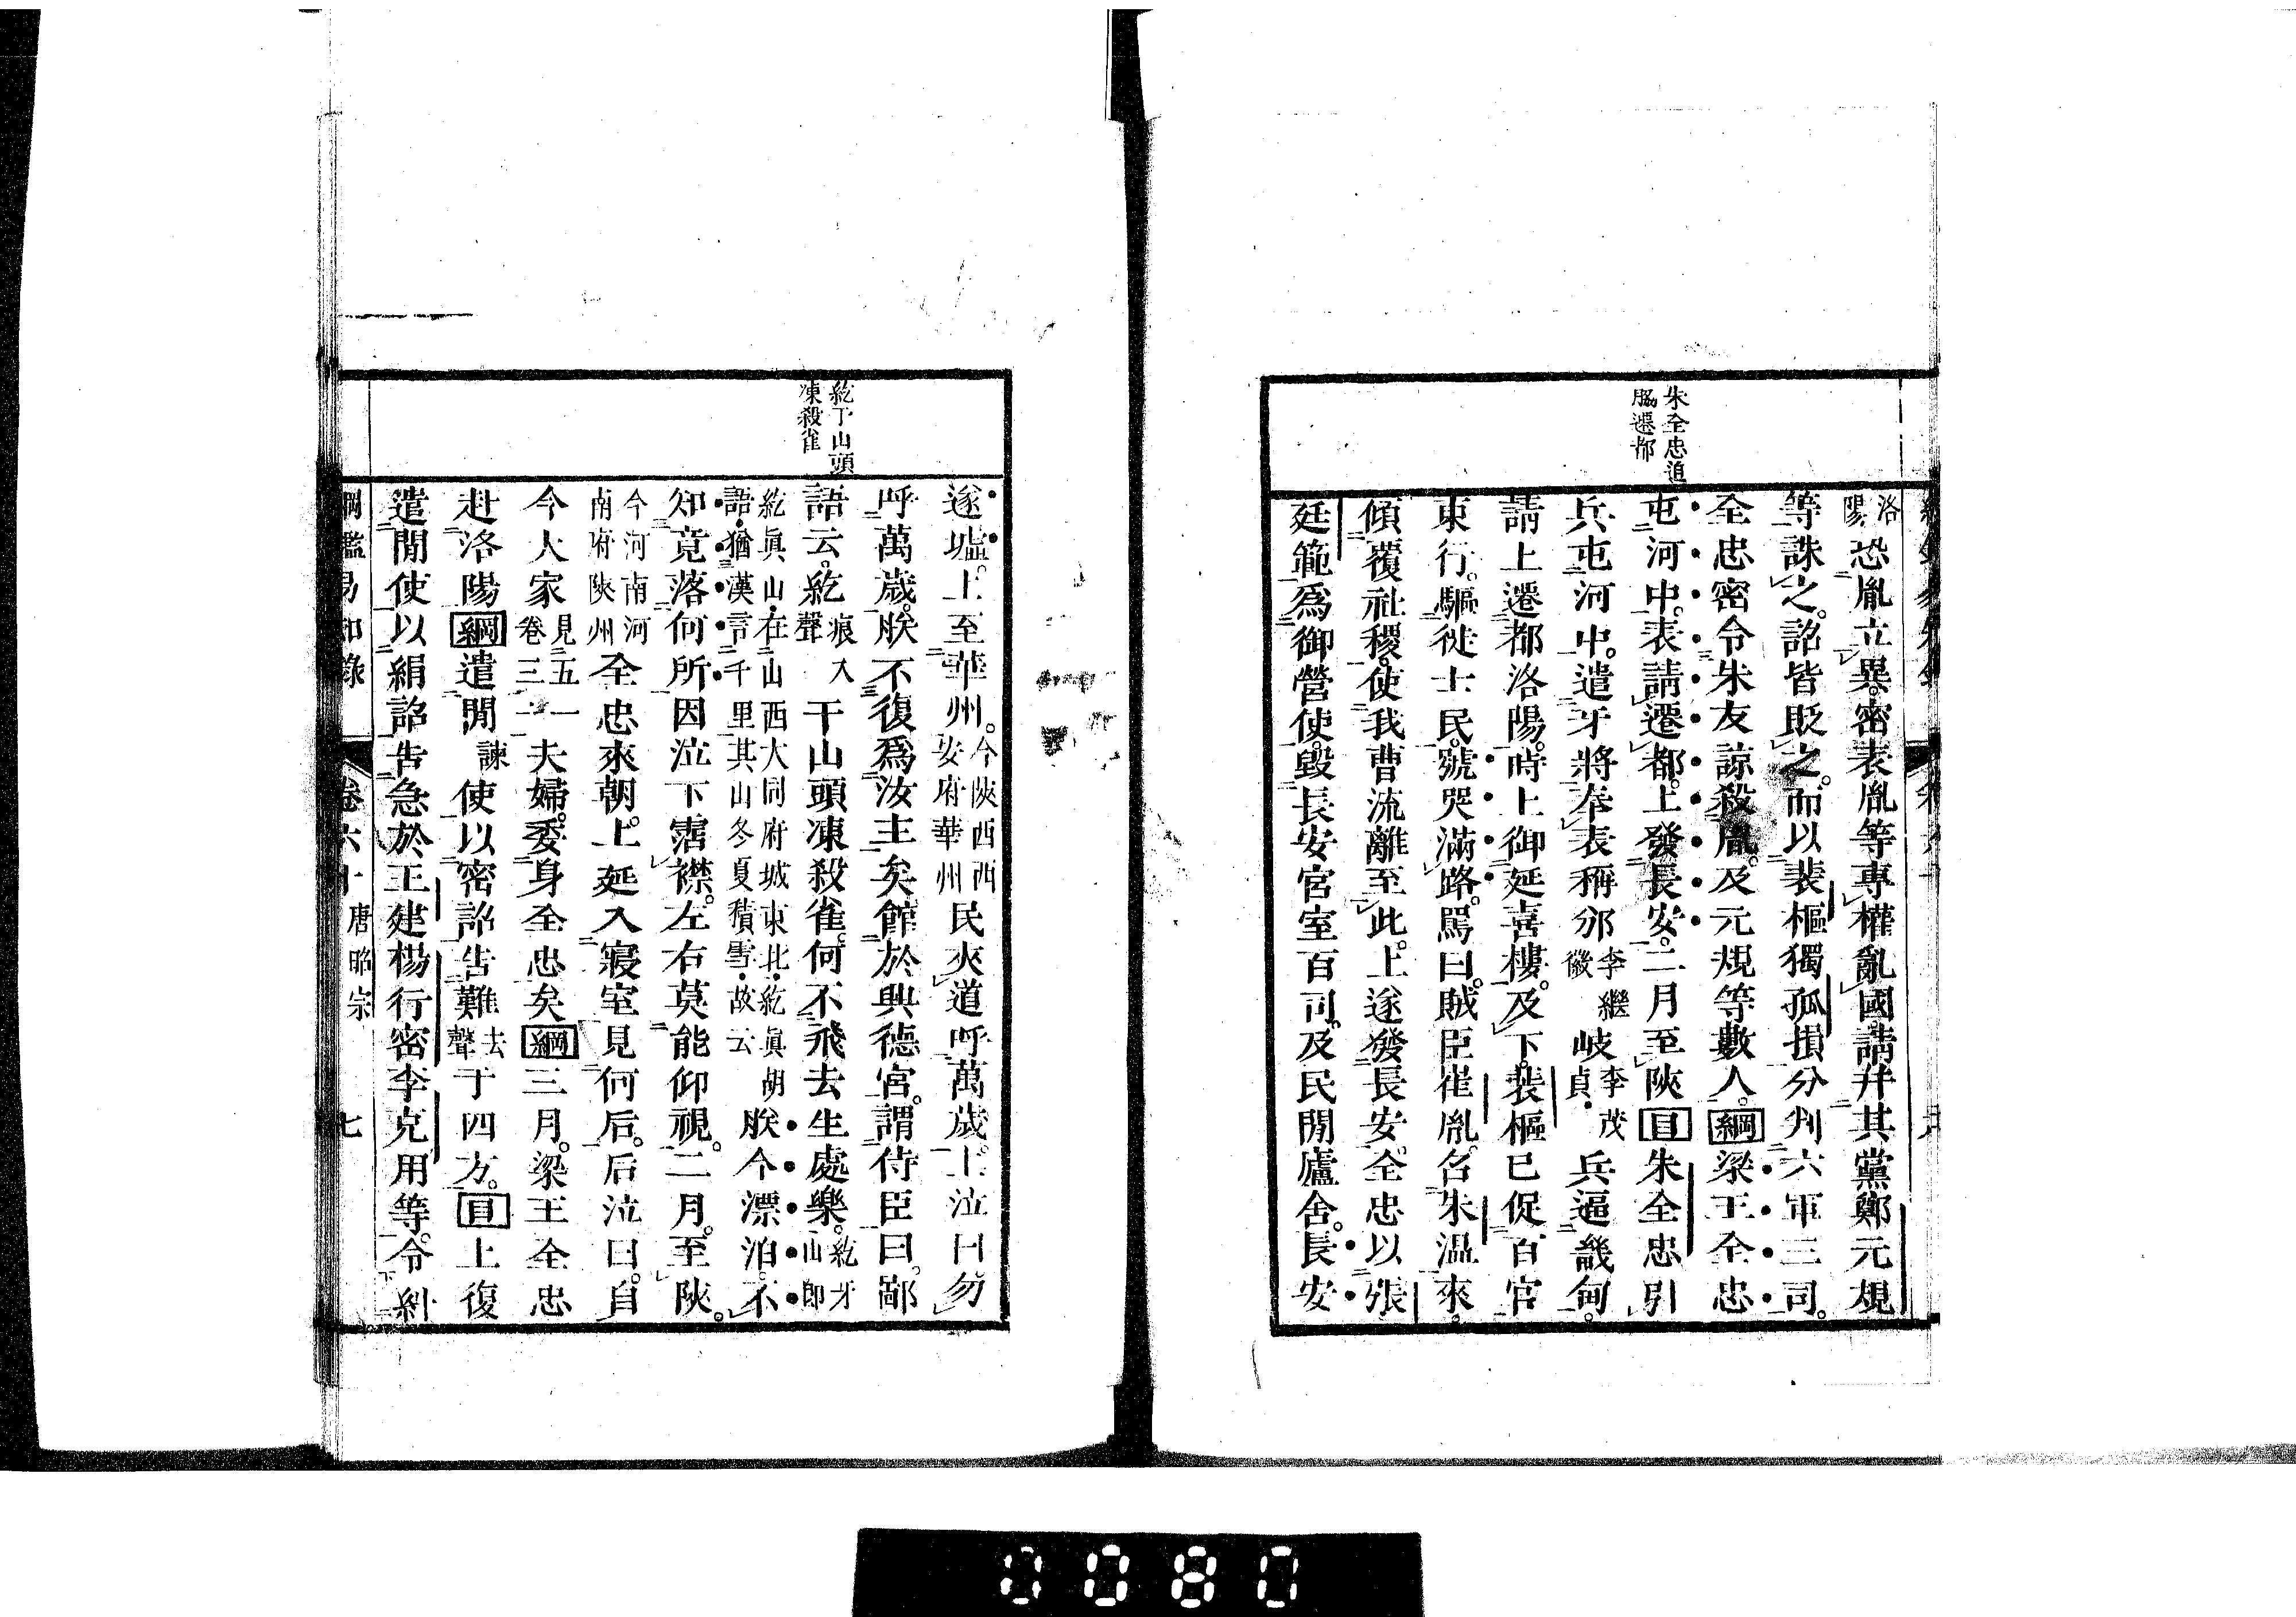 朱全忠追
脇遷都
洛陽恐胤立異。密表胤等專權亂國。請幷其黨鄭元規
等誅之。詔皆貶之。而以裴樞獨孤損分判六軍三司。
全忠密令朱友諒殺胤。及元規等數人。綱梁王全忠
屯河中。表請遷都。上發長安。二月至陝目朱全忠引
兵屯河中。遣牙將奉表稱邠李繼徽岐李茂貞兵逼畿甸。
請上遷都洛陽。時上御延喜樓。及下。裴樞已促百官
東行。驅徙士民。號哭滿路。罵曰。賊臣崔胤。召朱溫來。
傾覆社稷。使我曹流離至此。上遂發長安。全忠以張
廷範爲御營使。毀長安宮室百司。及民閒廬舍。長安
紇于山頭
凍殺雀
遂墟。上至華州。今陝西西安府華州民夾道呼萬歲。上泣曰勿
呼萬歲。朕不復爲汝主矣館於興德宮。謂侍臣曰。鄙
語云。紇痕入聲干山頭凍殺雀。何不飛去生處樂。紇牙山卽
紇眞山在山西大同府城東北紇眞胡語猶漢言千里其山冬夏積雪故云朕今漂泊。不
知竟落何所因泣下霑襟。左右莫能仰視。二月。至陝。
今河南河南府陝州全忠來朝。上延入寢室見何后。后泣曰。自
今大家見五一卷三一夫婦。委身全忠矣綱三月。梁王全忠
赴洛陽綱遣閒諫使以密詔告難去聲于四方。目上復
遣閒使以絹詔告急於王建楊行密李克用等。令糾
綱鑑易知錄 卷六十 唐昭宗 七